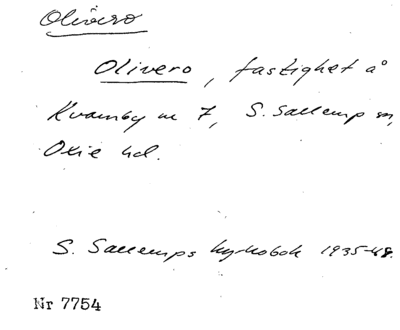 Olivero
Olivero, fastighet å
Kvarnby nr 7, S. Sallerup sn,
Oxie hd.
S. Sallerups kyrkobok 1935-48.
Nr 7754